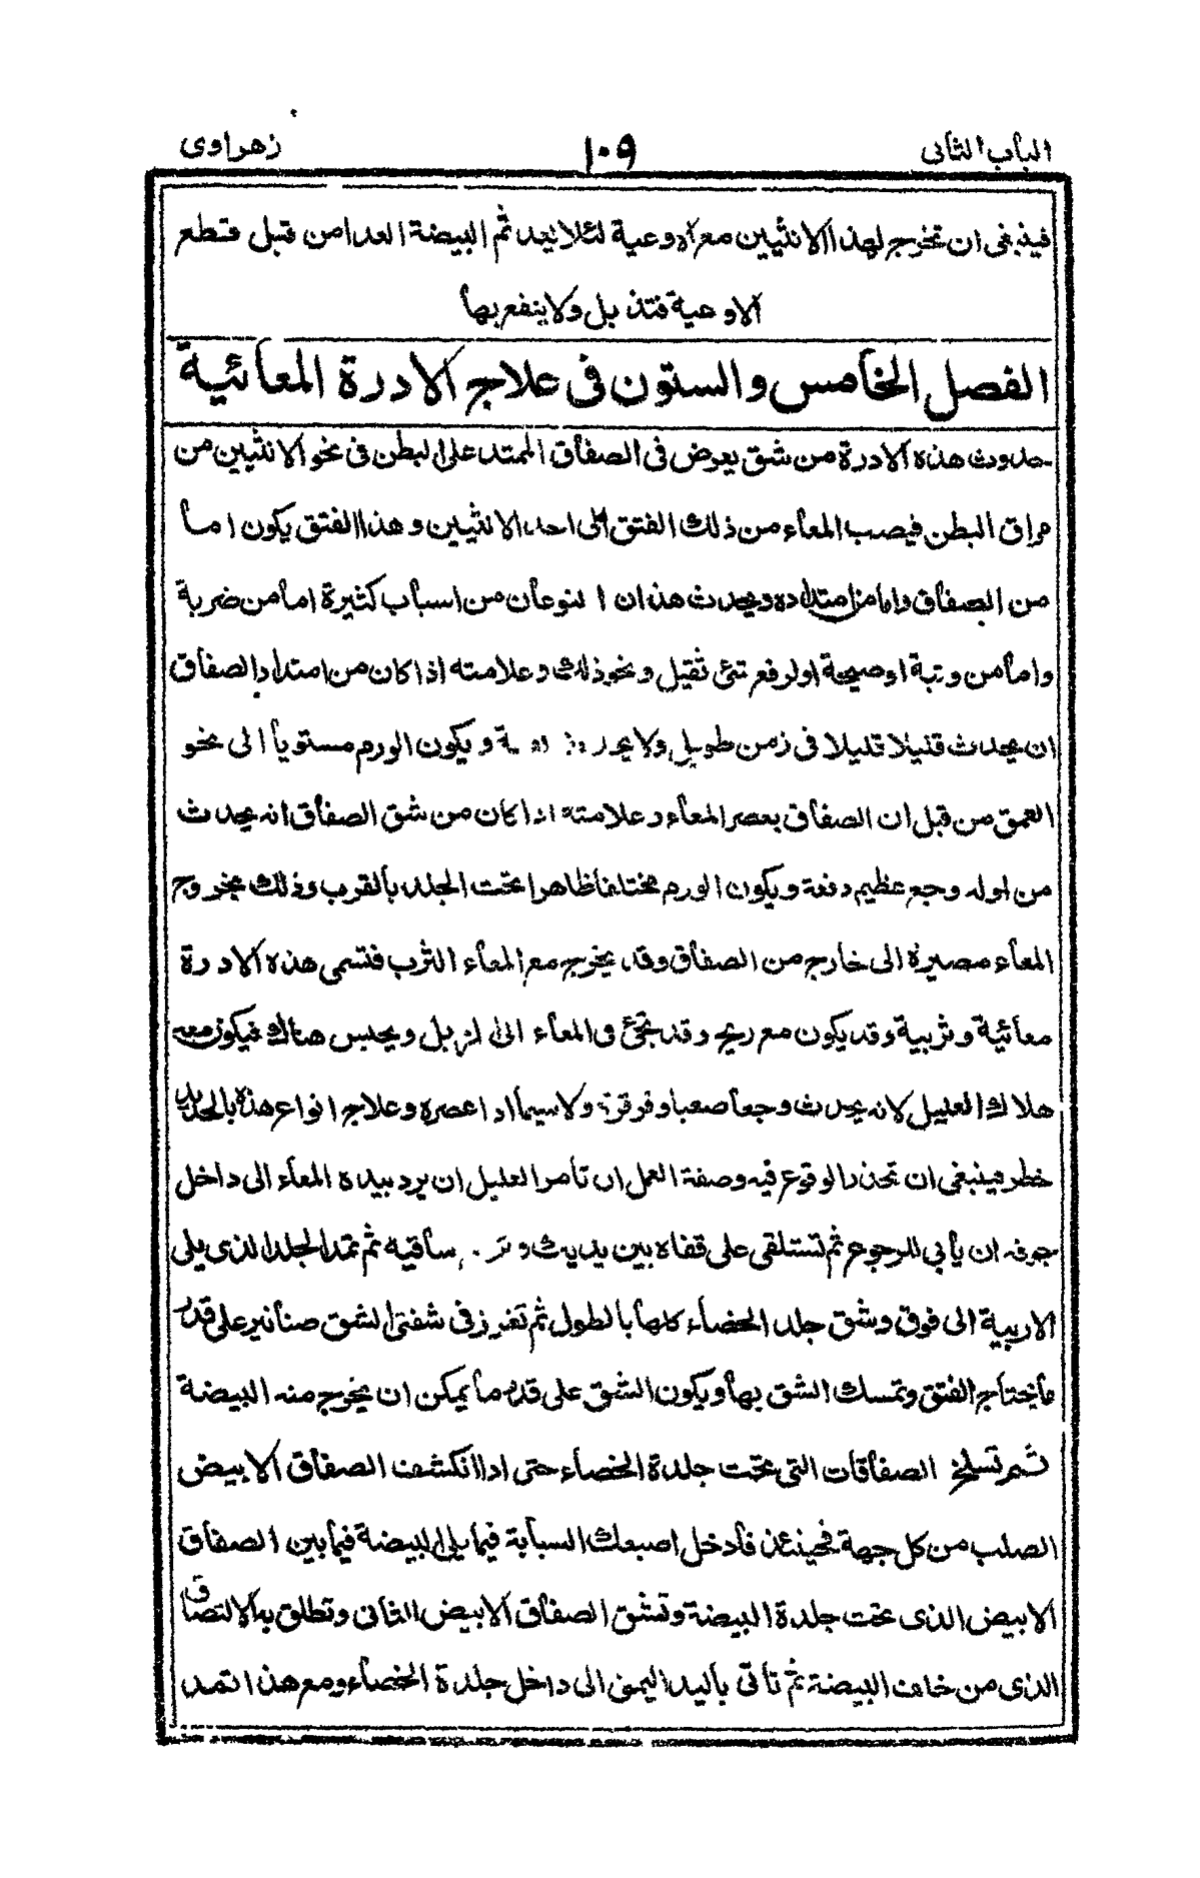 الباب الثانی ١٠٩ زهراوی
فينبغی ان تخرج لهذا الانثيين مع الاوعية لئلا تعدم البيضة الغدا من قبل قطع
الاوعية فتذبل ولا ينفع بها
الفصل الخامس والستون فی علاج الادرة المعائية
حدوث هذه الادرة من شق يعرض فی الصفاق الممتد علی البطن فی نحو الانثيين من
مراق البطن فيصب المعاء من ذلك الفتق الی احد الانثيين وهذا الفتق يكون اما
من الصفاق واما من امتداده ويحدث هذان النوعان من اسباب كثيرة اما من ضربة
واما من وثبة او صيحة او لرفع شئ ثقيل ونحو ذلك وعلامته اذا كان من امتداد الصفاق
ان يحدث قليلا قليلا فی زمن طويل ولا يحدث ويكون الورم مستويا الی نحو
العمق من قبل ان الصفاق يعصر المعاء وعلامته اذا كان من شق الصفاق انه يحدث
من اوله وجع عظيم دفعة ويكون الورم مختلفا ظاهرا تحت الجلد بالقرب وذلك بخروج
المعاء مصيره الی خارج من الصفاق وقد يخرج مع المعاء الثرب فتسمی هذه الادرة
معائية وثربية وقد يكون مع ريح وقد تجئ فی المعاء الزبل ويحبس هناك فيكون معه
هلاك العليل لانه يحدث وجعا صعبا وقرقرة ولا سيما اذا عصره وعلاج انواع هذه بالحديد
خطر فينبغی ان تحذر الوقوع فيه وصفة العمل ان تامر العليل ان يرد بيده المعاء الی داخل
جوفه ان يأبی للرجوع ثم تستلقی علی قفاه بين يديك ساقيه ثم تمد الجلد الذی يلی
الاربية الی فوق وشق جلد الخصاء كلها بالطول ثم تغرز فی شفتی الشق صنانير علی قدر
ما يحتاج الفتق وتمسك الشق بها ويكون الشق علی قدر ما يمكن ان يخرج منه البيضة
ثم تسلخ الصفاقات التی تحت جلدة الخصاء حتی اذا انكشف الصفاق الابيض
الصلب من كل جهة فحينئذ فادخل اصبعك السبابة فيما يلی البيضة فيما بين الصفاق
الابيض الذی تحت جلدة البيضة وتشق الصفاق الابيض الثانی وتطلق به الالتصاق
الذی من خلف البيضة ثم تأتی باليد اليمنی الی داخل جلدة الخصاء ومع هذا تمد